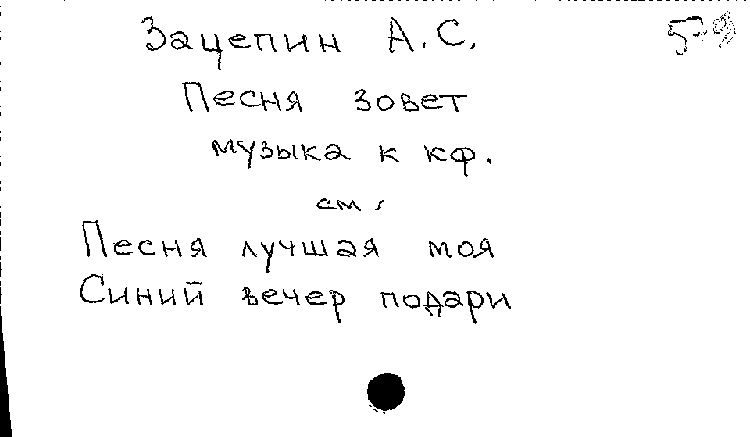 Зацепин А.С.
Песня зовет
музыка к кф.
см.
Песня лучшая моя
Синий вечер подари